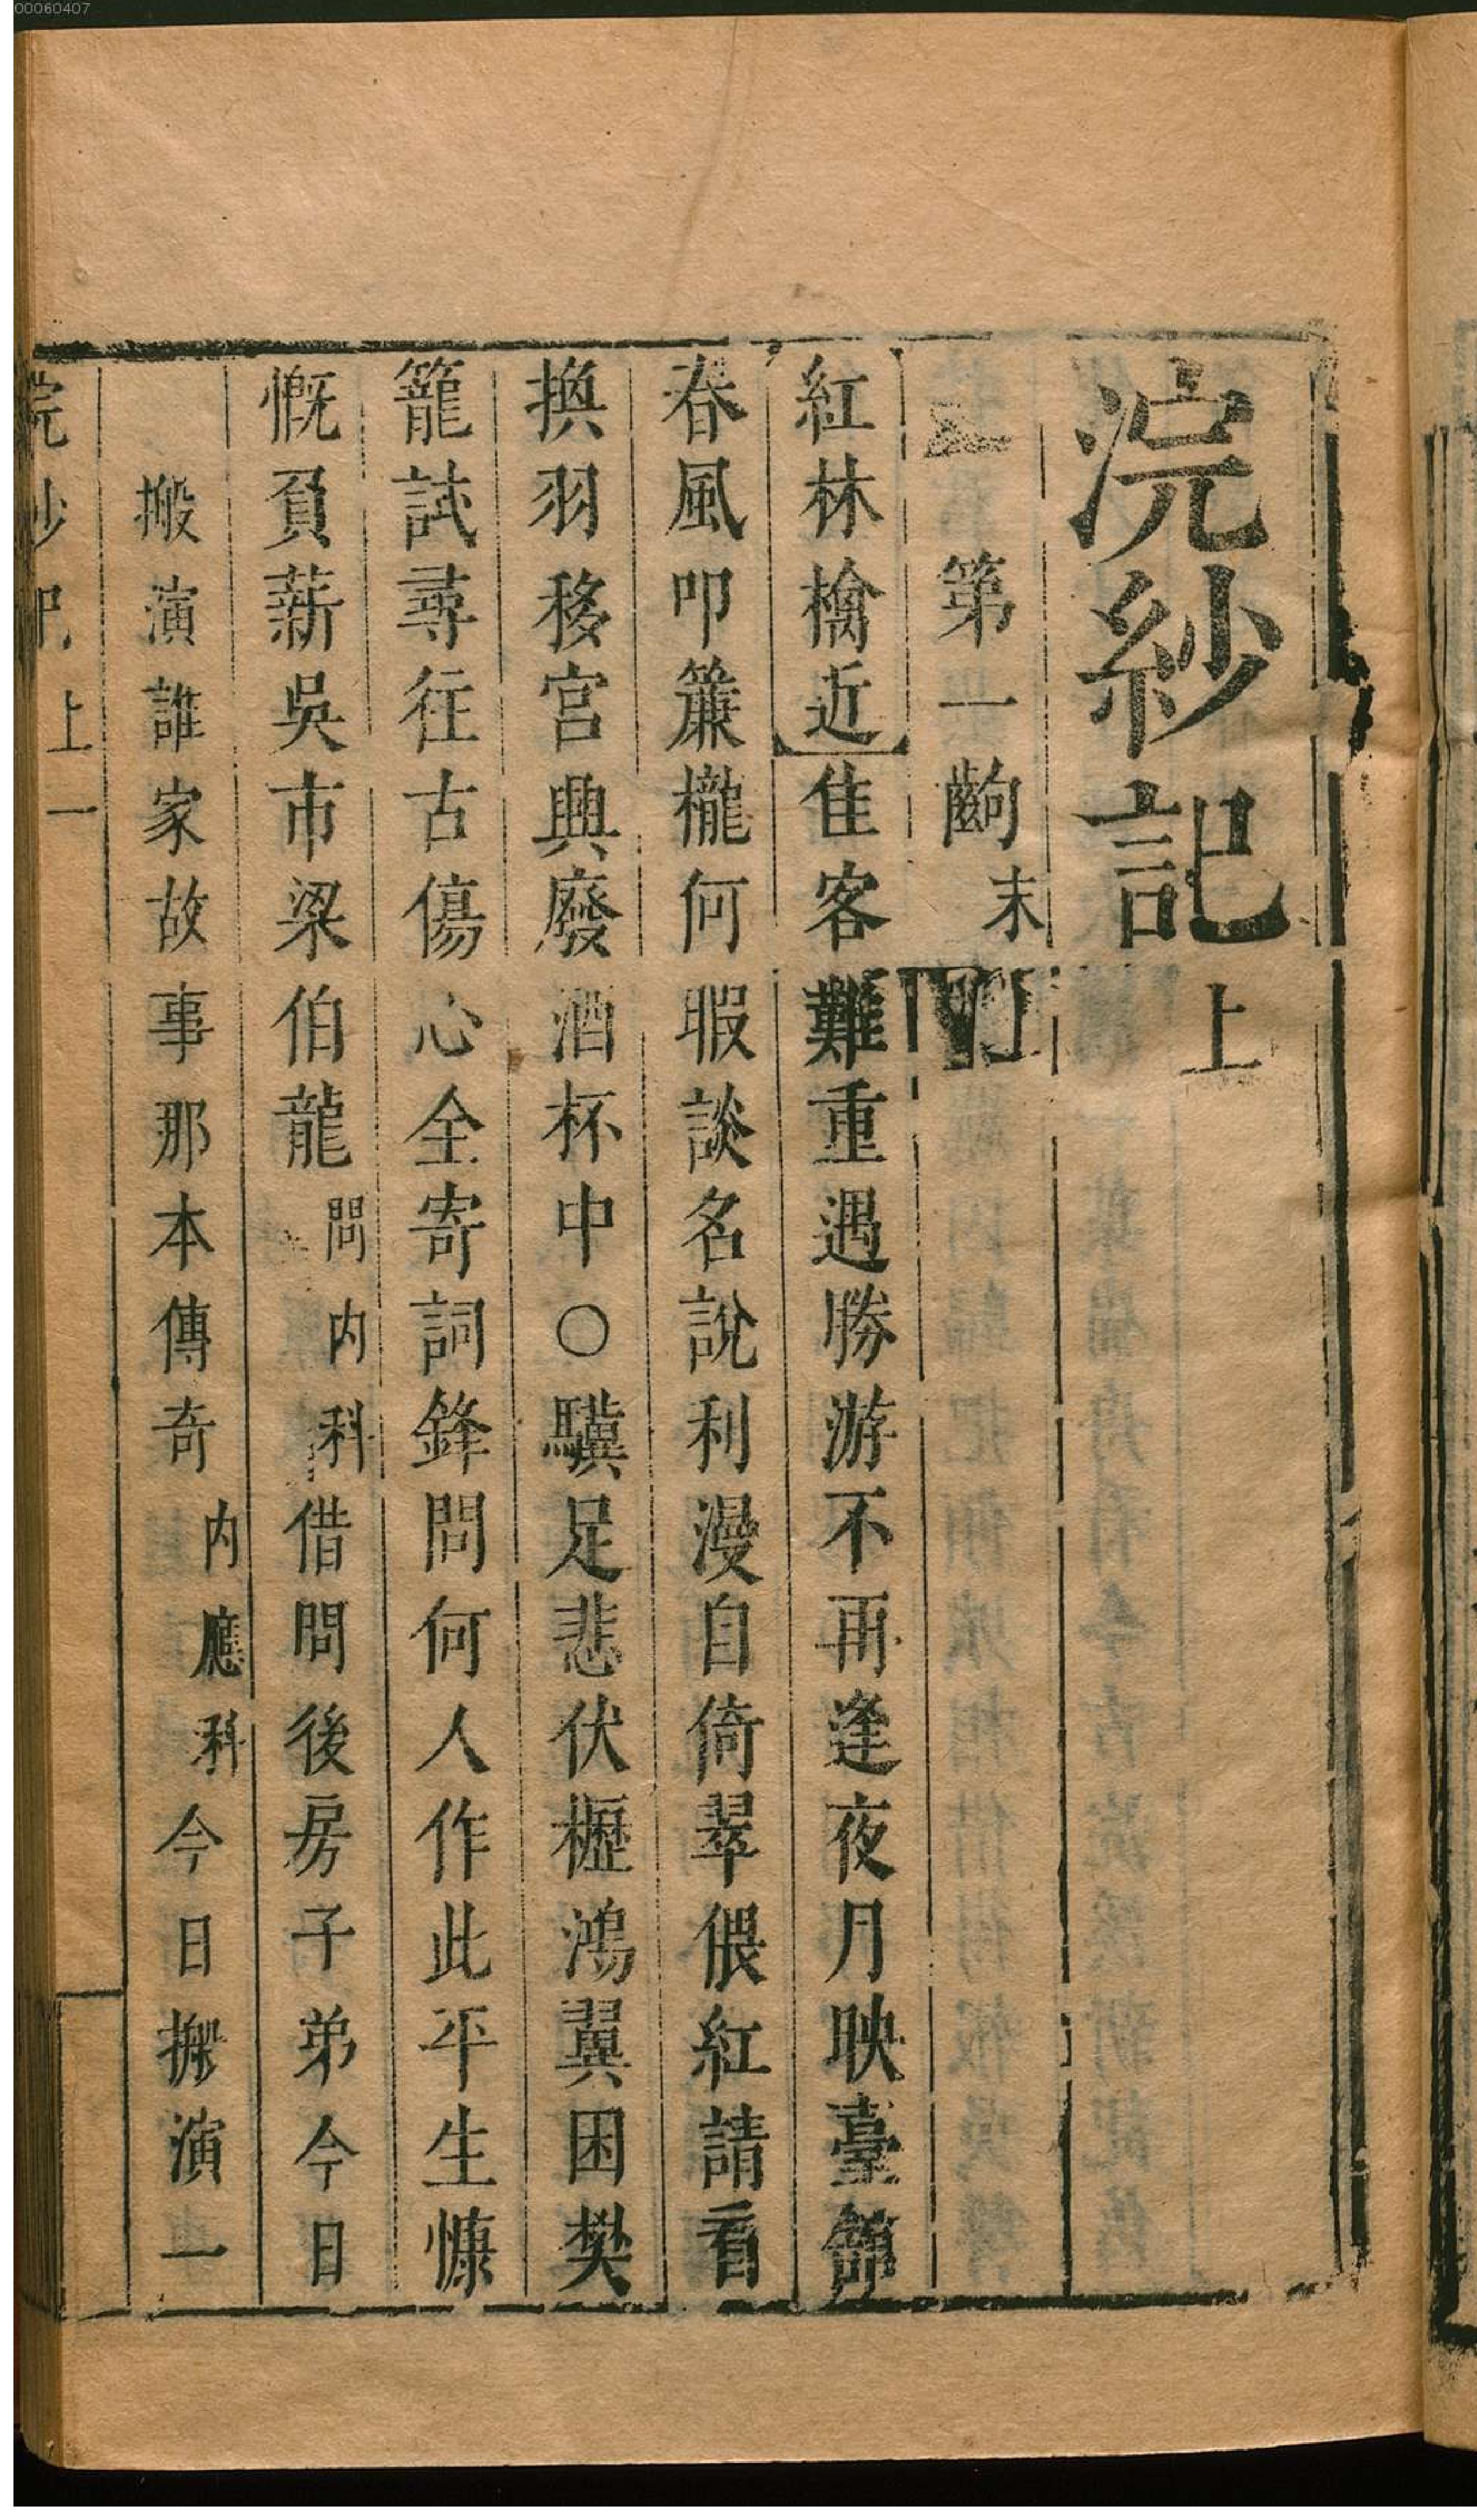 00060407
浣紗記 上
第一齣 末
紅林檎近 佳客難重遇勝游不再逢夜月映臺館
春風叩簾櫳何暇談名說利漫自倚翠偎紅請看
換羽移宮興廢酒杯中○驥足悲伏櫪鴻翼困樊
籠試尋往古傷心全寄詞鋒問何人作此平生慷
慨負薪吳市梁伯龍 問內科 借問後房子弟今日
搬演誰家故事那本傳奇 內應科 今日搬演一
浣紗記 上 一